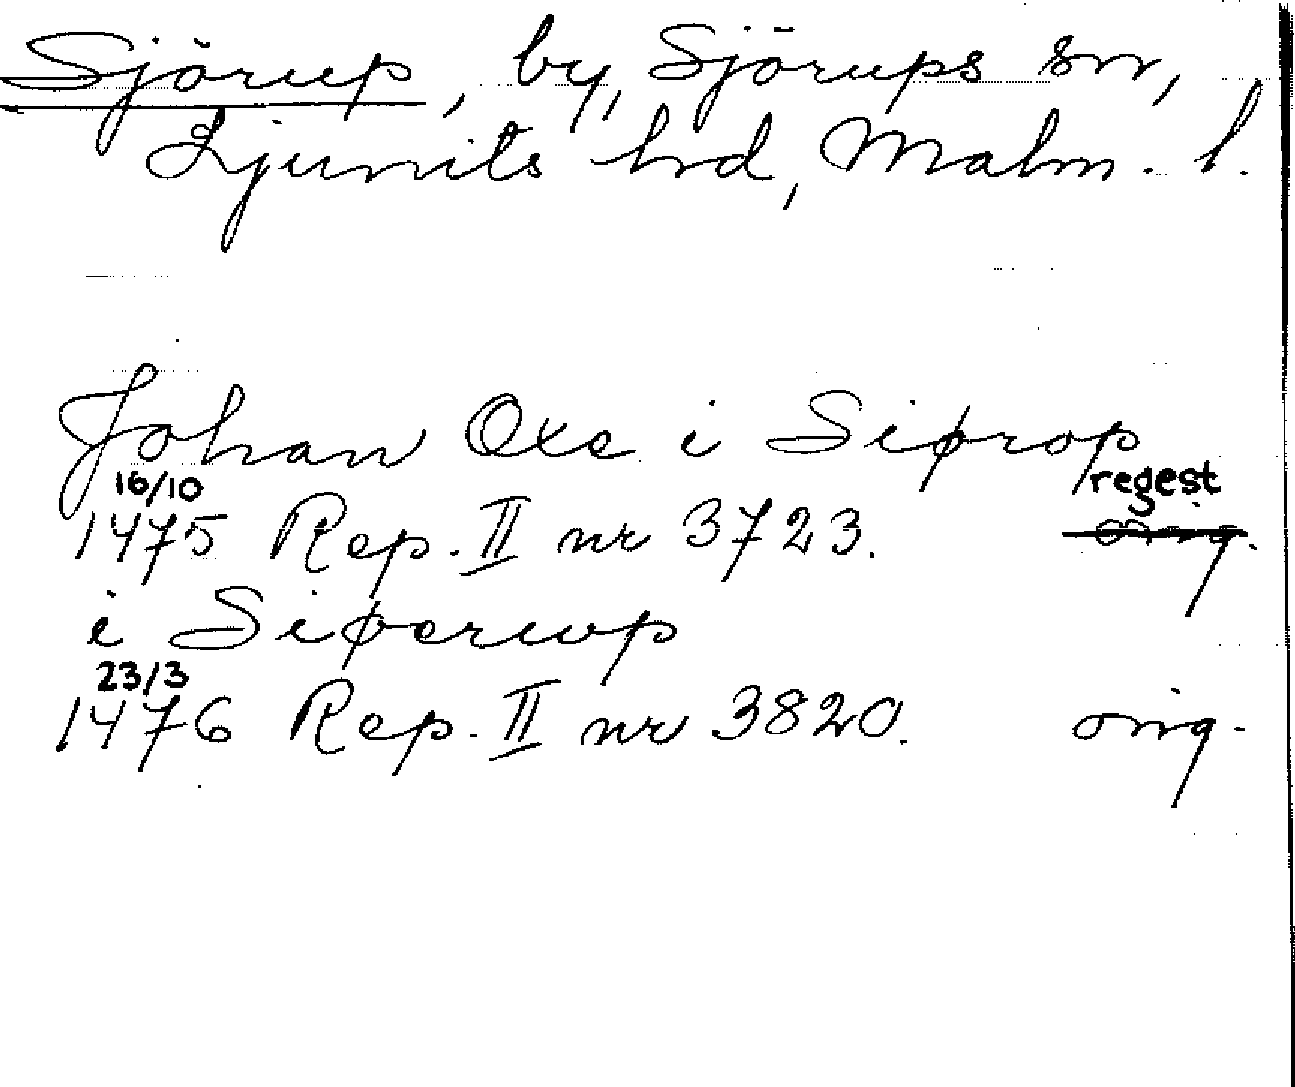 Sjörup, by, Sjörups sn,
Ljunits hrd, Malm. l.
Johan Oxe i Siørop
16/10 regest
1475 Rep. II nr 3723. orig.
i Siøerwp
23/3
1476 Rep. II nr 3820. orig.